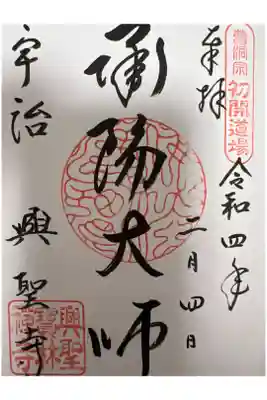 曹洞宗
初開道場
奉拝
令和四年
二月四日
承陽大師
宇治 興聖寺
興聖
寶林
禪寺